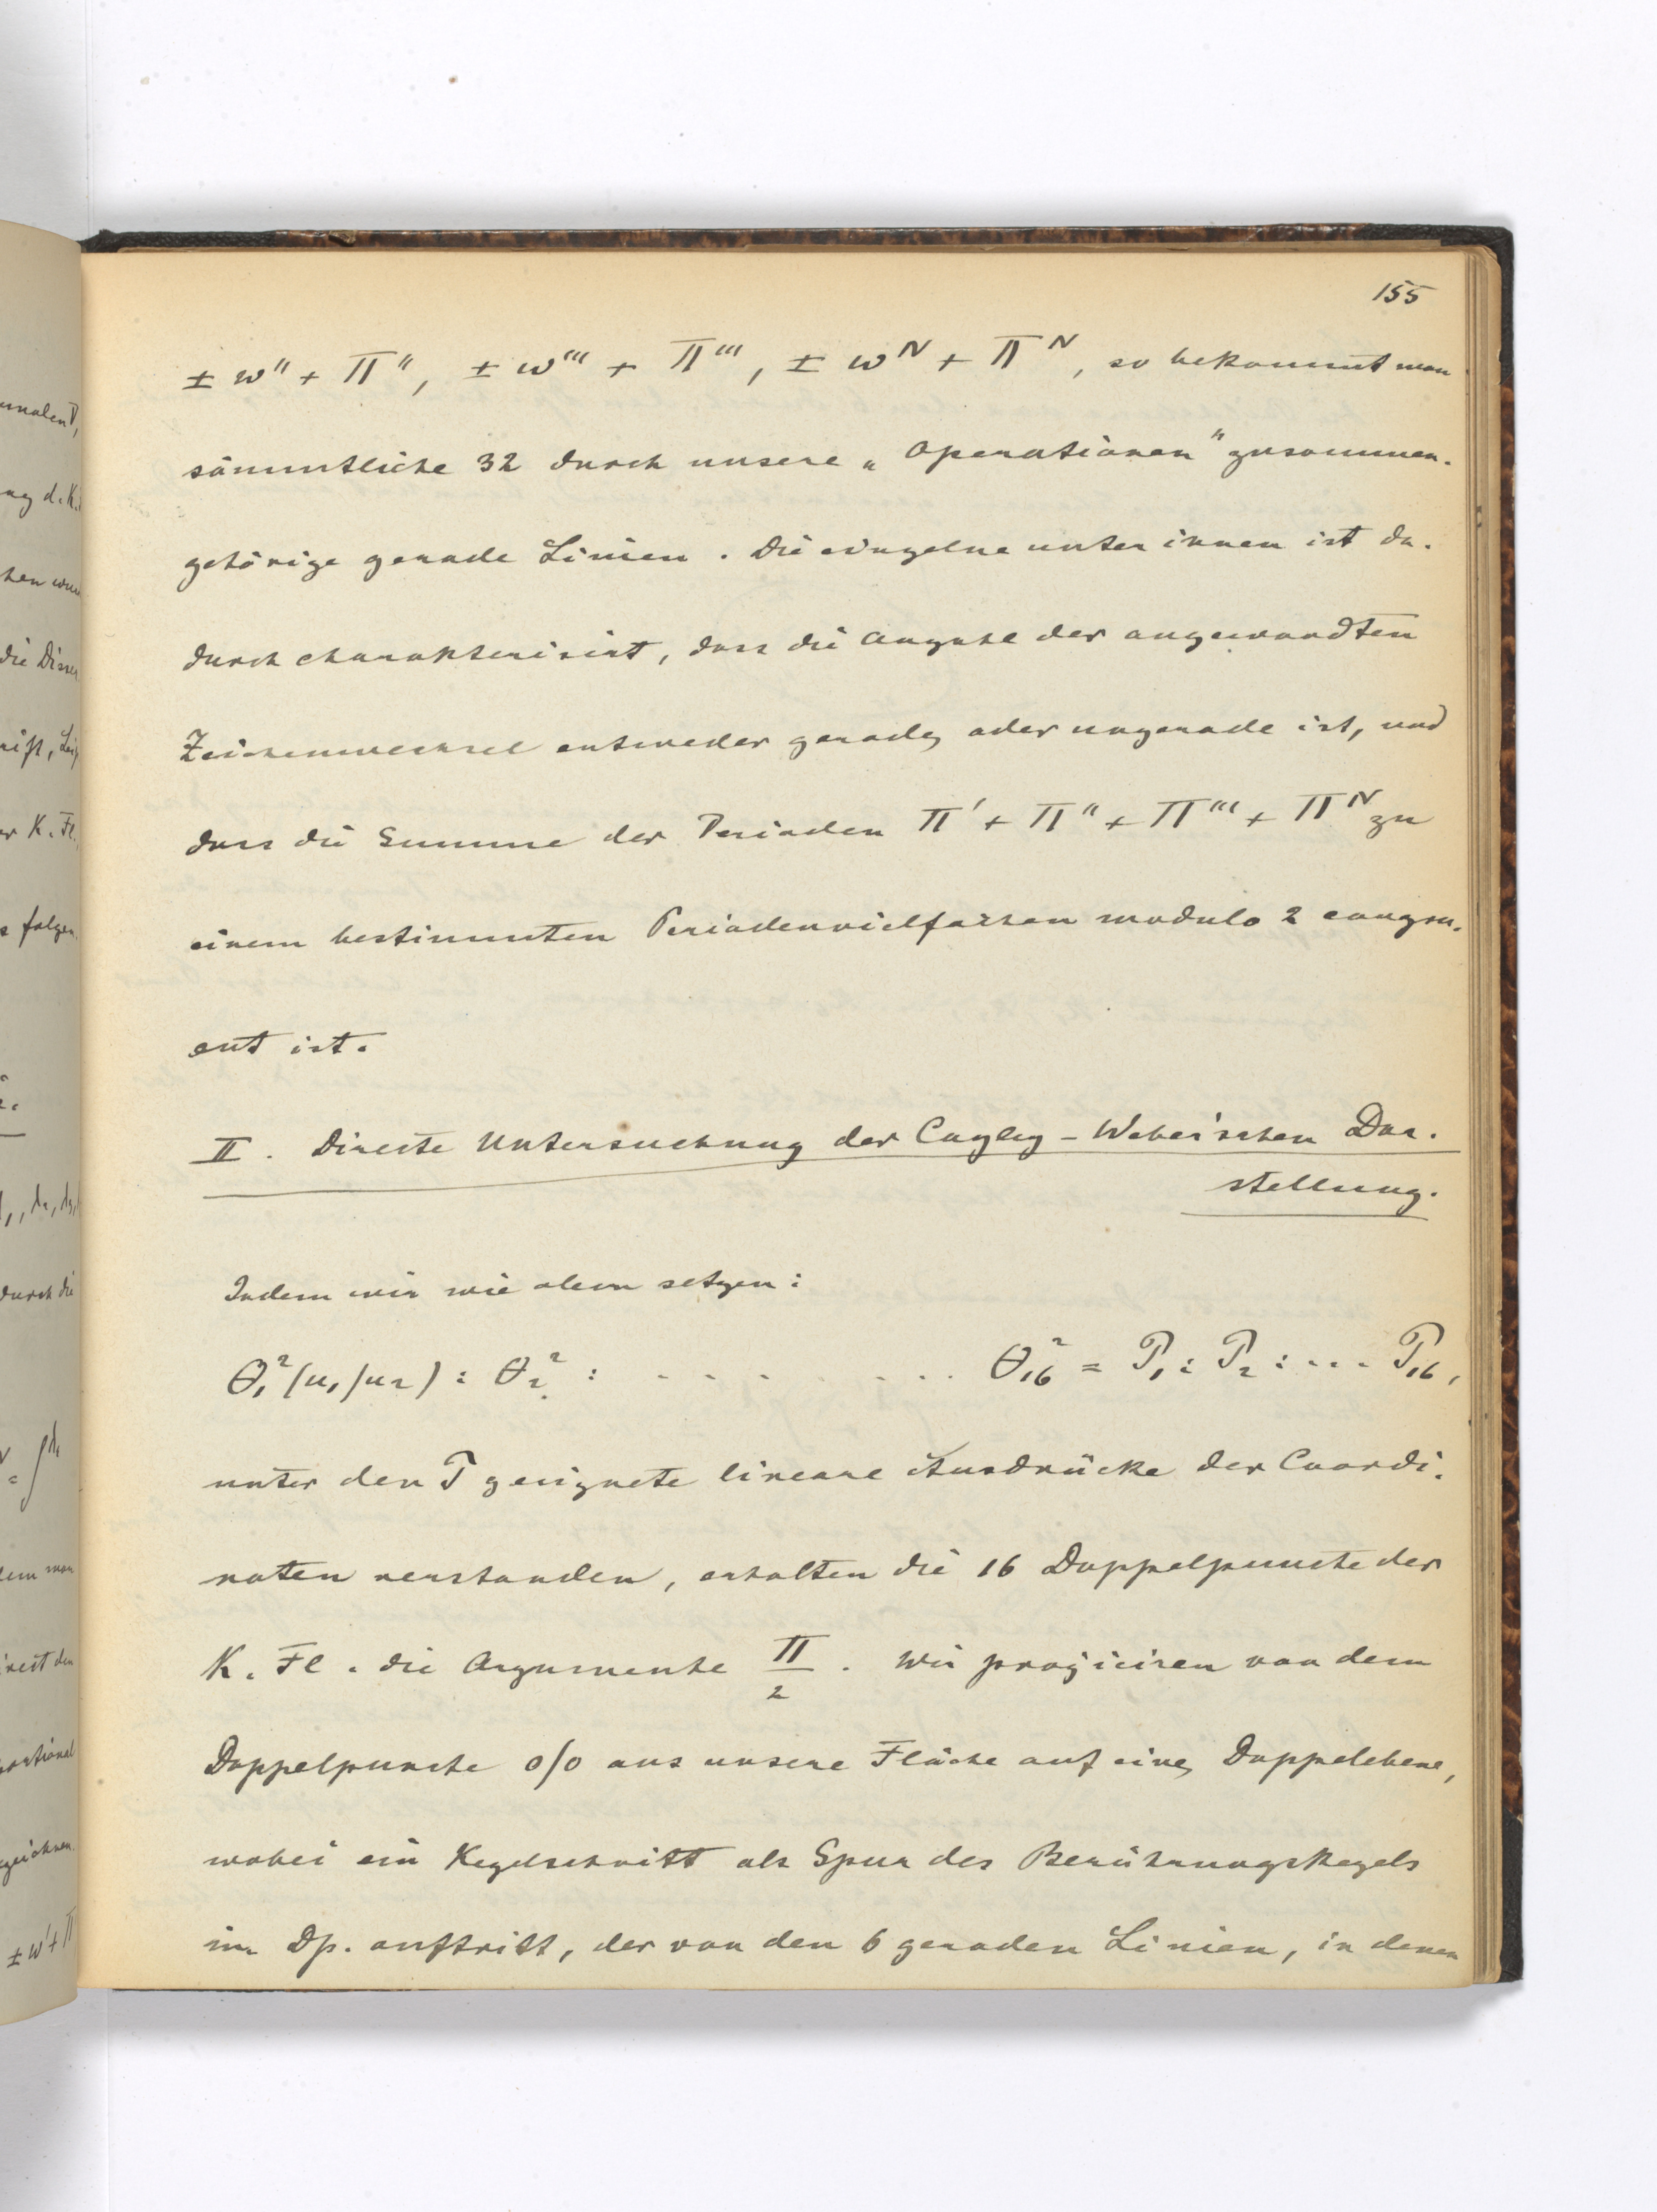 155
± w'' + Π'', ± w''' + Π''', ± w^IV + Π^IV, so bekommt man
sämmtliche 32 durch unsere „Operationen" zusammen-
gehörige gerade Linien. Die einzelne unter ihnen ist da-
durch charakterisirt, dass die Anzahl der angewandten
Zeichenwechsel entweder gerade, oder ungerade ist, und
dass die Summe der Perioden Π' + Π'' + Π''' + Π^IV zu
einem bestimmten Periodenvielfachen modulo 2 congru-
ent ist.
II. Directe Untersuchung der Cayley-Weber'schen Dar-
stellung.
Indem wir wie oben setzen:
θ₁²(u₁/u₂) : θ₂² : . . . . . . . . θ₁₆² = T₁ : T₂ : ... T₁₆,
unter den T geeignete lineare Ausdrücke der Coordi-
naten verstanden, erhalten die 16 Doppelpuncte der
K. Fl. die Argumente Π/2. Wir projiciren von dem
Doppelpuncte 0/0 aus unsere Fläche auf eine Doppelebene,
wobei ein Kegelschnitt als Spur des Berührungskegels
im Dp. auftritt, der von den 6 geraden Linien, in denen
unalent,
ng d. K.
die Disser
K. Fl.
folgen
durch die
dem man
ortional
zeichnen
± w' + Π